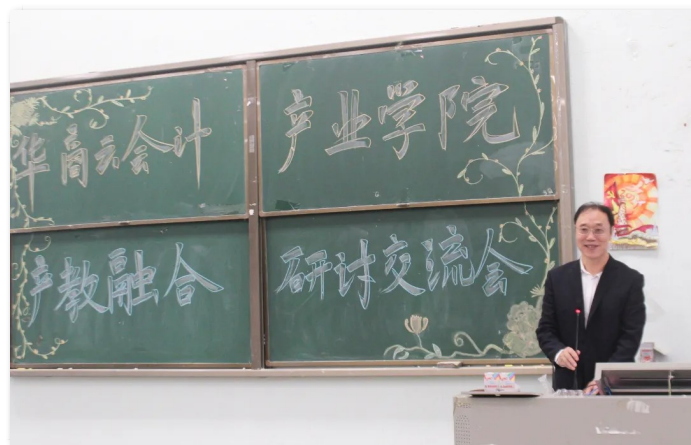 华商云会计 产业学院
产教融合 研讨交流会